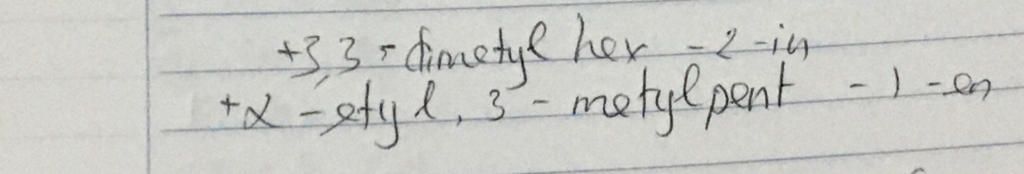 +3,3-dimetyl hex -2-in
+2-etyl, 3-metylpent -1-en